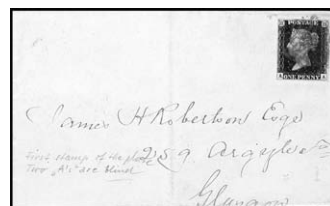 POSTAGE
ONE PENNY
James H Robertson Esqr
First stamp of the plate
Two "A's" are blind
259 Argyle St
Glasgow